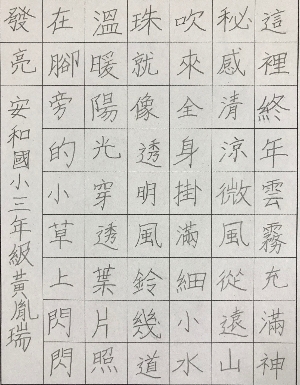 這裡終年雲霧充滿神
秘感清涼微風從遠山
吹來全身掛滿細小水
珠就像透明風鈴幾道
溫暖陽光穿透葉片照
在腳旁的小草上閃閃
發亮
安和國小三年級黃胤瑞